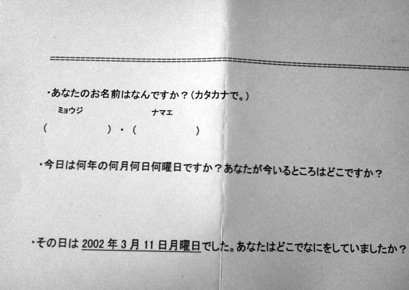 ================================================
・あなたのお名前はなんですか？（カタカナで。）
ミョウジ　ナマエ
（　　　　　）・（　　　　　）
・今日は何年の何月何日何曜日ですか？あなたが今いるところはどこですか？
・その日は 2002 年 3 月 11 日月曜日でした。あなたはどこでなにをしていましたか？